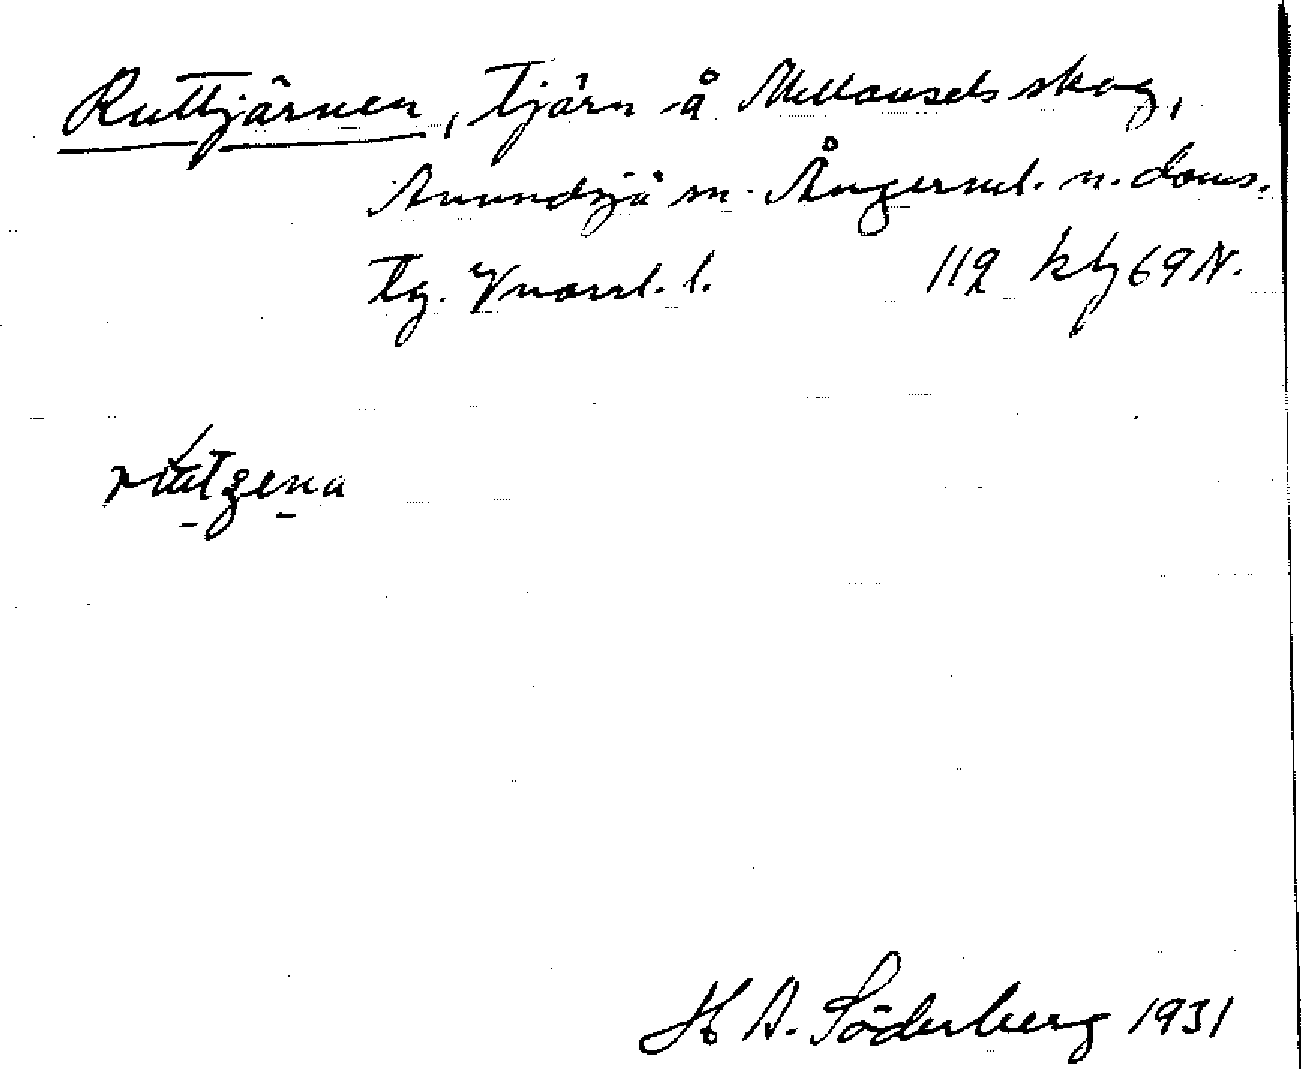 Ruttjärnen, tjärn å Mellansels skog,
Anundsjö sn. Ångerml. n. doms.
tg. Vnorrl. l. 112 kbg 69 N.
H A. Söderberg 1931